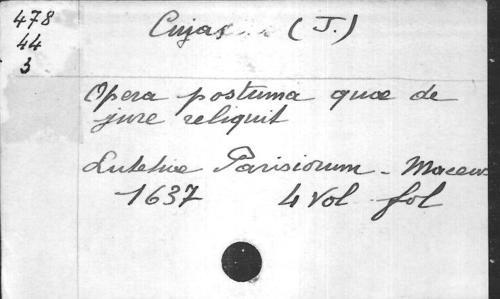 478
44
3
Cujas (J.)
Opera postuma quæ de
jure reliquit
Lutetiæ Parisiorum - Maceus
1637 4 Vol fol